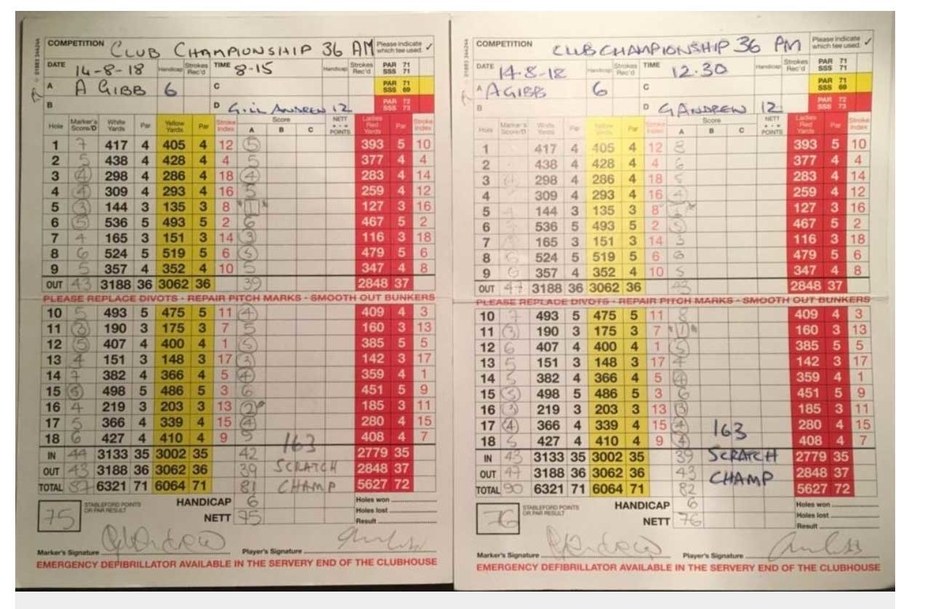 COMPETITION CLUB CHAMPIONSHIP 36 AM
Please indicate which tee used. ✓
DATE 14-8-18 Handicap Strokes Rec'd TIME 8-15 Handicap Strokes Rec'd PAR 71 SSS 71
A A GIBB 6 C PAR 71 SSS 69
B D ANDREW 12 PAR 72 SSS 73
Hole Marker's Score/D White Yards Par Yellow Yards Par Stroke Index Score A B C NETT + - • POINTS Ladies Red Yards Par Stroke Index
1 7 417 4 405 4 12 5 393 5 10
2 5 438 4 428 4 4 5 377 4 4
3 4 298 4 286 4 18 4 283 4 14
4 309 4 293 4 16 5 259 4 12
5 3 144 3 135 3 8 "1" 127 3 16
6 5 536 5 493 5 2 6 467 5 2
7 4 165 3 151 3 14 3 116 3 18
8 6 524 5 519 5 6 5 479 5 6
9 5 357 4 352 4 10 5 347 4 8
OUT 43 3188 36 3062 36 39 2848 37
PLEASE REPLACE DIVOTS - REPAIR PITCH MARKS - SMOOTH OUT BUNKERS
10 5 493 5 475 5 11 4 409 4 3
11 3 190 3 175 3 7 5 160 3 13
12 5 407 4 400 4 1 5 385 5 5
13 4 151 3 148 3 17 3 142 3 17
14 7 382 4 366 4 5 4 359 4 1
15 5 498 5 486 5 3 6 451 5 9
16 4 219 3 203 3 13 2 185 3 11
17 5 366 4 339 4 15 4 280 4 15
18 6 427 4 410 4 9 5 408 4 7
163
IN 44 3133 35 3002 35 42 2779 35
SCRATCH
OUT 43 3188 36 3062 36 39 2848 37
CHAMP
TOTAL 87 6321 71 6064 71 81 5627 72
HANDICAP 6 Holes won
75 STABLEFORD POINTS OR PAR RESULT Holes lost
NETT 75 Result
Marker's Signature Player's Signature
EMERGENCY DEFIBRILLATOR AVAILABLE IN THE SERVERY END OF THE CLUBHOUSE
COMPETITION CLUB CHAMPIONSHIP 36 PM
Please indicate which tee used. ✓
DATE 14-8-18 Handicap Strokes Rec'd TIME 12.30 Handicap Strokes Rec'd PAR 71 SSS 71
A A GIBB 6 C PAR 71 SSS 69
B D G ANDREW 12 PAR 72 SSS 73
Hole Marker's Score/D White Yards Par Yellow Yards Par Stroke Index Score A B C NETT + - • POINTS Ladies Red Yards Par Stroke Index
1 417 4 405 4 12 8 393 5 10
2 438 4 428 4 4 6 377 4 4
3 298 4 286 4 18 5 283 4 14
4 309 4 293 4 16 4 259 4 12
5 144 3 135 3 8 127 3 16
6 536 5 493 5 2 5 467 5 2
7 165 3 151 3 14 3 116 3 18
8 5 524 5 519 5 6 6 479 5 6
9 6 357 4 352 4 10 5 347 4 8
OUT 47 3188 36 3062 36 43 2848 37
PLEASE REPLACE DIVOTS - REPAIR PITCH MARKS - SMOOTH OUT BUNKERS
10 7 493 5 475 5 11 8 409 4 3
11 3 190 3 175 3 7 "1" 160 3 13
12 6 407 4 400 4 1 5 385 5 5
13 5 151 3 148 3 17 4 142 3 17
14 5 382 4 366 4 5 4 359 4 1
15 5 498 5 486 5 3 6 451 5 9
16 3 219 3 203 3 13 3 185 3 11
17 4 366 4 339 4 15 4 280 4 15
18 5 427 4 410 4 9 4 408 4 7
163
IN 43 3133 35 3002 35 39 2779 35
SCRATCH
OUT 47 3188 36 3062 36 43 2848 37
CHAMP
TOTAL 90 6321 71 6064 71 82 5627 72
HANDICAP 6 Holes won
76 STABLEFORD POINTS OR PAR RESULT Holes lost
NETT 76 Result
Marker's Signature Player's Signature
EMERGENCY DEFIBRILLATOR AVAILABLE IN THE SERVERY END OF THE CLUBHOUSE